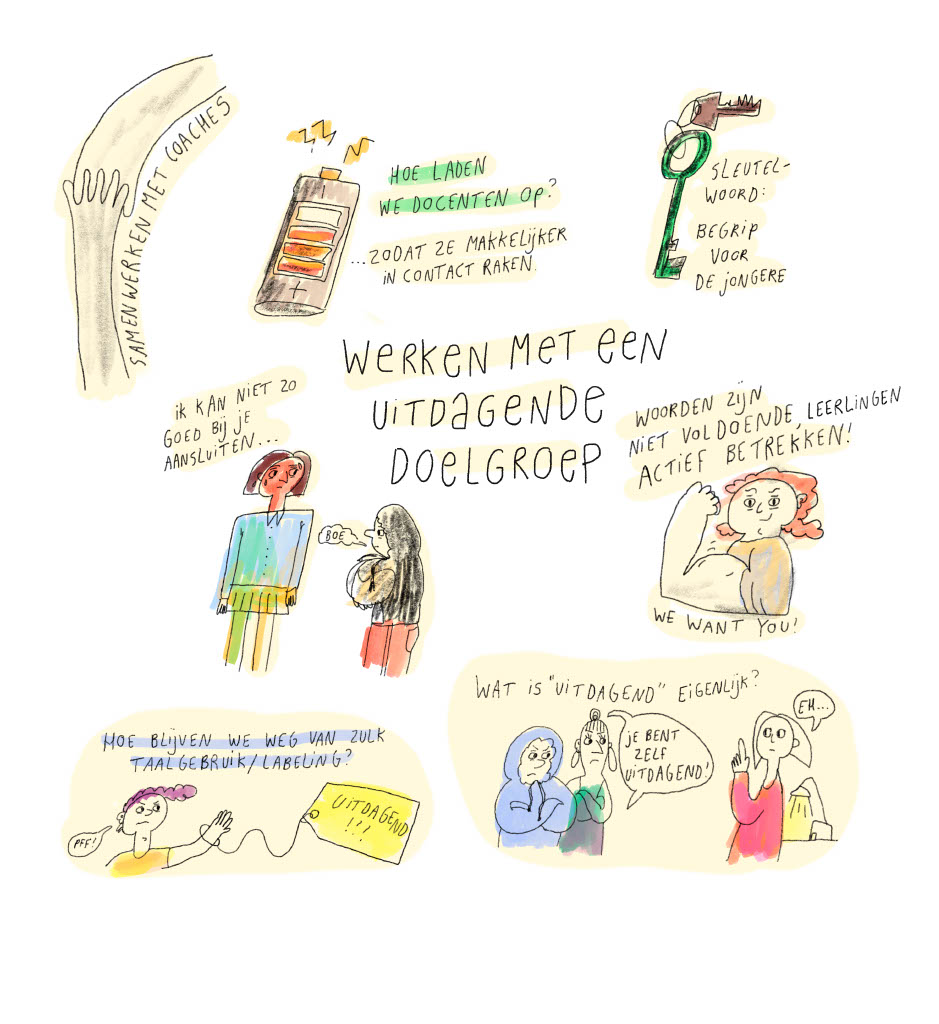 SAMENWERKEN MET COACHES
HOE LADEN
WE DOCENTEN OP?
...ZODAT ZE MAKKELIJKER
IN CONTACT RAKEN.
SLEUTEL-
WOORD:
BEGRIP
VOOR
DE JONGERE
WERKEN MET EEN
UITDAGENDE
DOELGROEP
IK KAN NIET ZO
GOED BIJ JE
AANSLUITEN...
BOE
WOORDEN ZIJN
NIET VOLDOENDE, LEERLINGEN
ACTIEF BETREKKEN!
WE WANT YOU!
HOE BLIJVEN WE WEG VAN ZULK
TAALGEBRUIK/LABELING?
PFF!
UITDAGEND
!!!
WAT IS "UITDAGEND" EIGENLIJK?
JE BENT
ZELF
UITDAGEND!
EH...